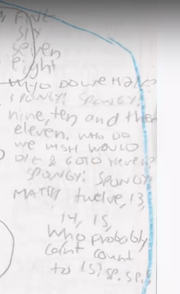 FIVE
SIX
Seven
Eight
WHO DO WE HATE?
SPONGY! SPONGY!
nine, ten and then
eleven. WHO DO
we WISH WOULD
DIE & GOTO Heven?
SPONGY! SPONGY!
MATH! twelve, 13
14, 15,
Who probobly
cant count
to 15? SP. SP.